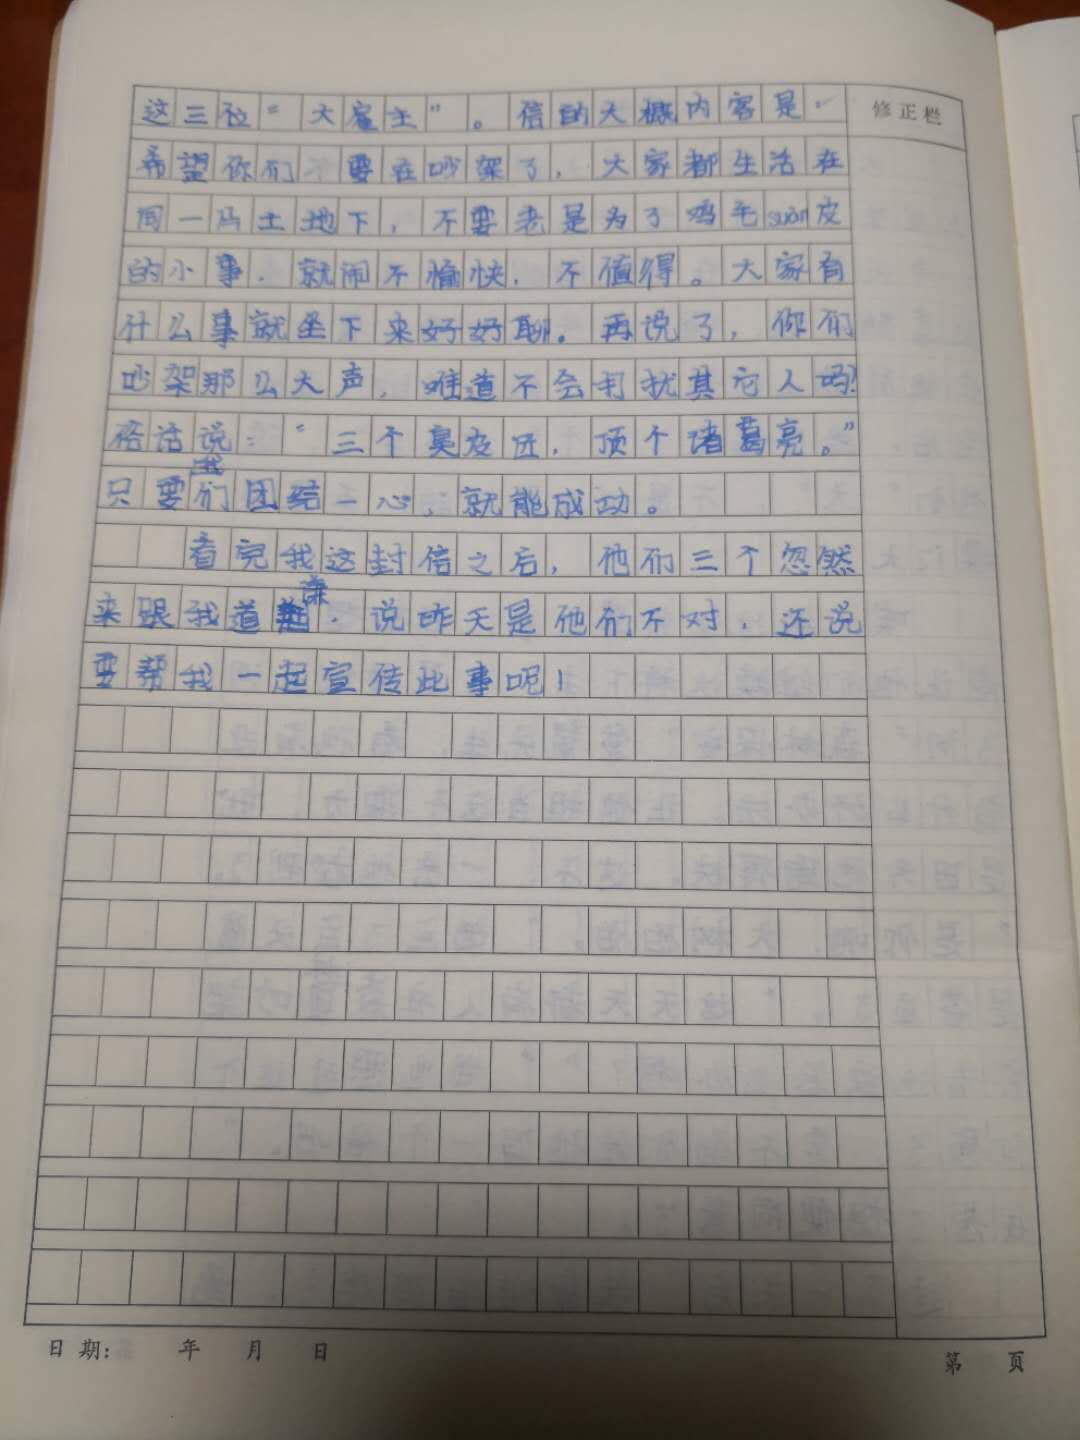 这三位“大雇主”。信的大概内容是：
修正栏
希望你们不要在吵架了，大家都生活在
同一片土地下，不要老是为了鸡毛suàn皮
的小事，就闹不愉快，不值得。大家有
什么事就坐下来好好聊。再说了，你们
吵架那么大声，难道不会打扰其它人吗？
俗话说：“三个臭皮匠，顶个诸葛亮。”
只要我们团结一心，就能成功。
看完我这封信之后，他们三个忽然
来跟我道歉，说昨天是他们不对，还说
要帮我一起宣传此事呢！
日期： 年 月 日
第 页